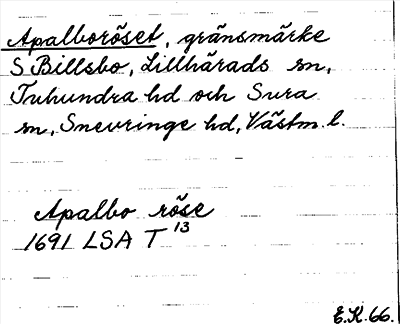 Apalboröset, gränsmärke
S Billsbo, Lillhärads sn,
Tuhundra hd och Sura
sn, Snevringe hd, Västm. l.
Apalbo röse
1691 LSA T 13
E.K. 66.